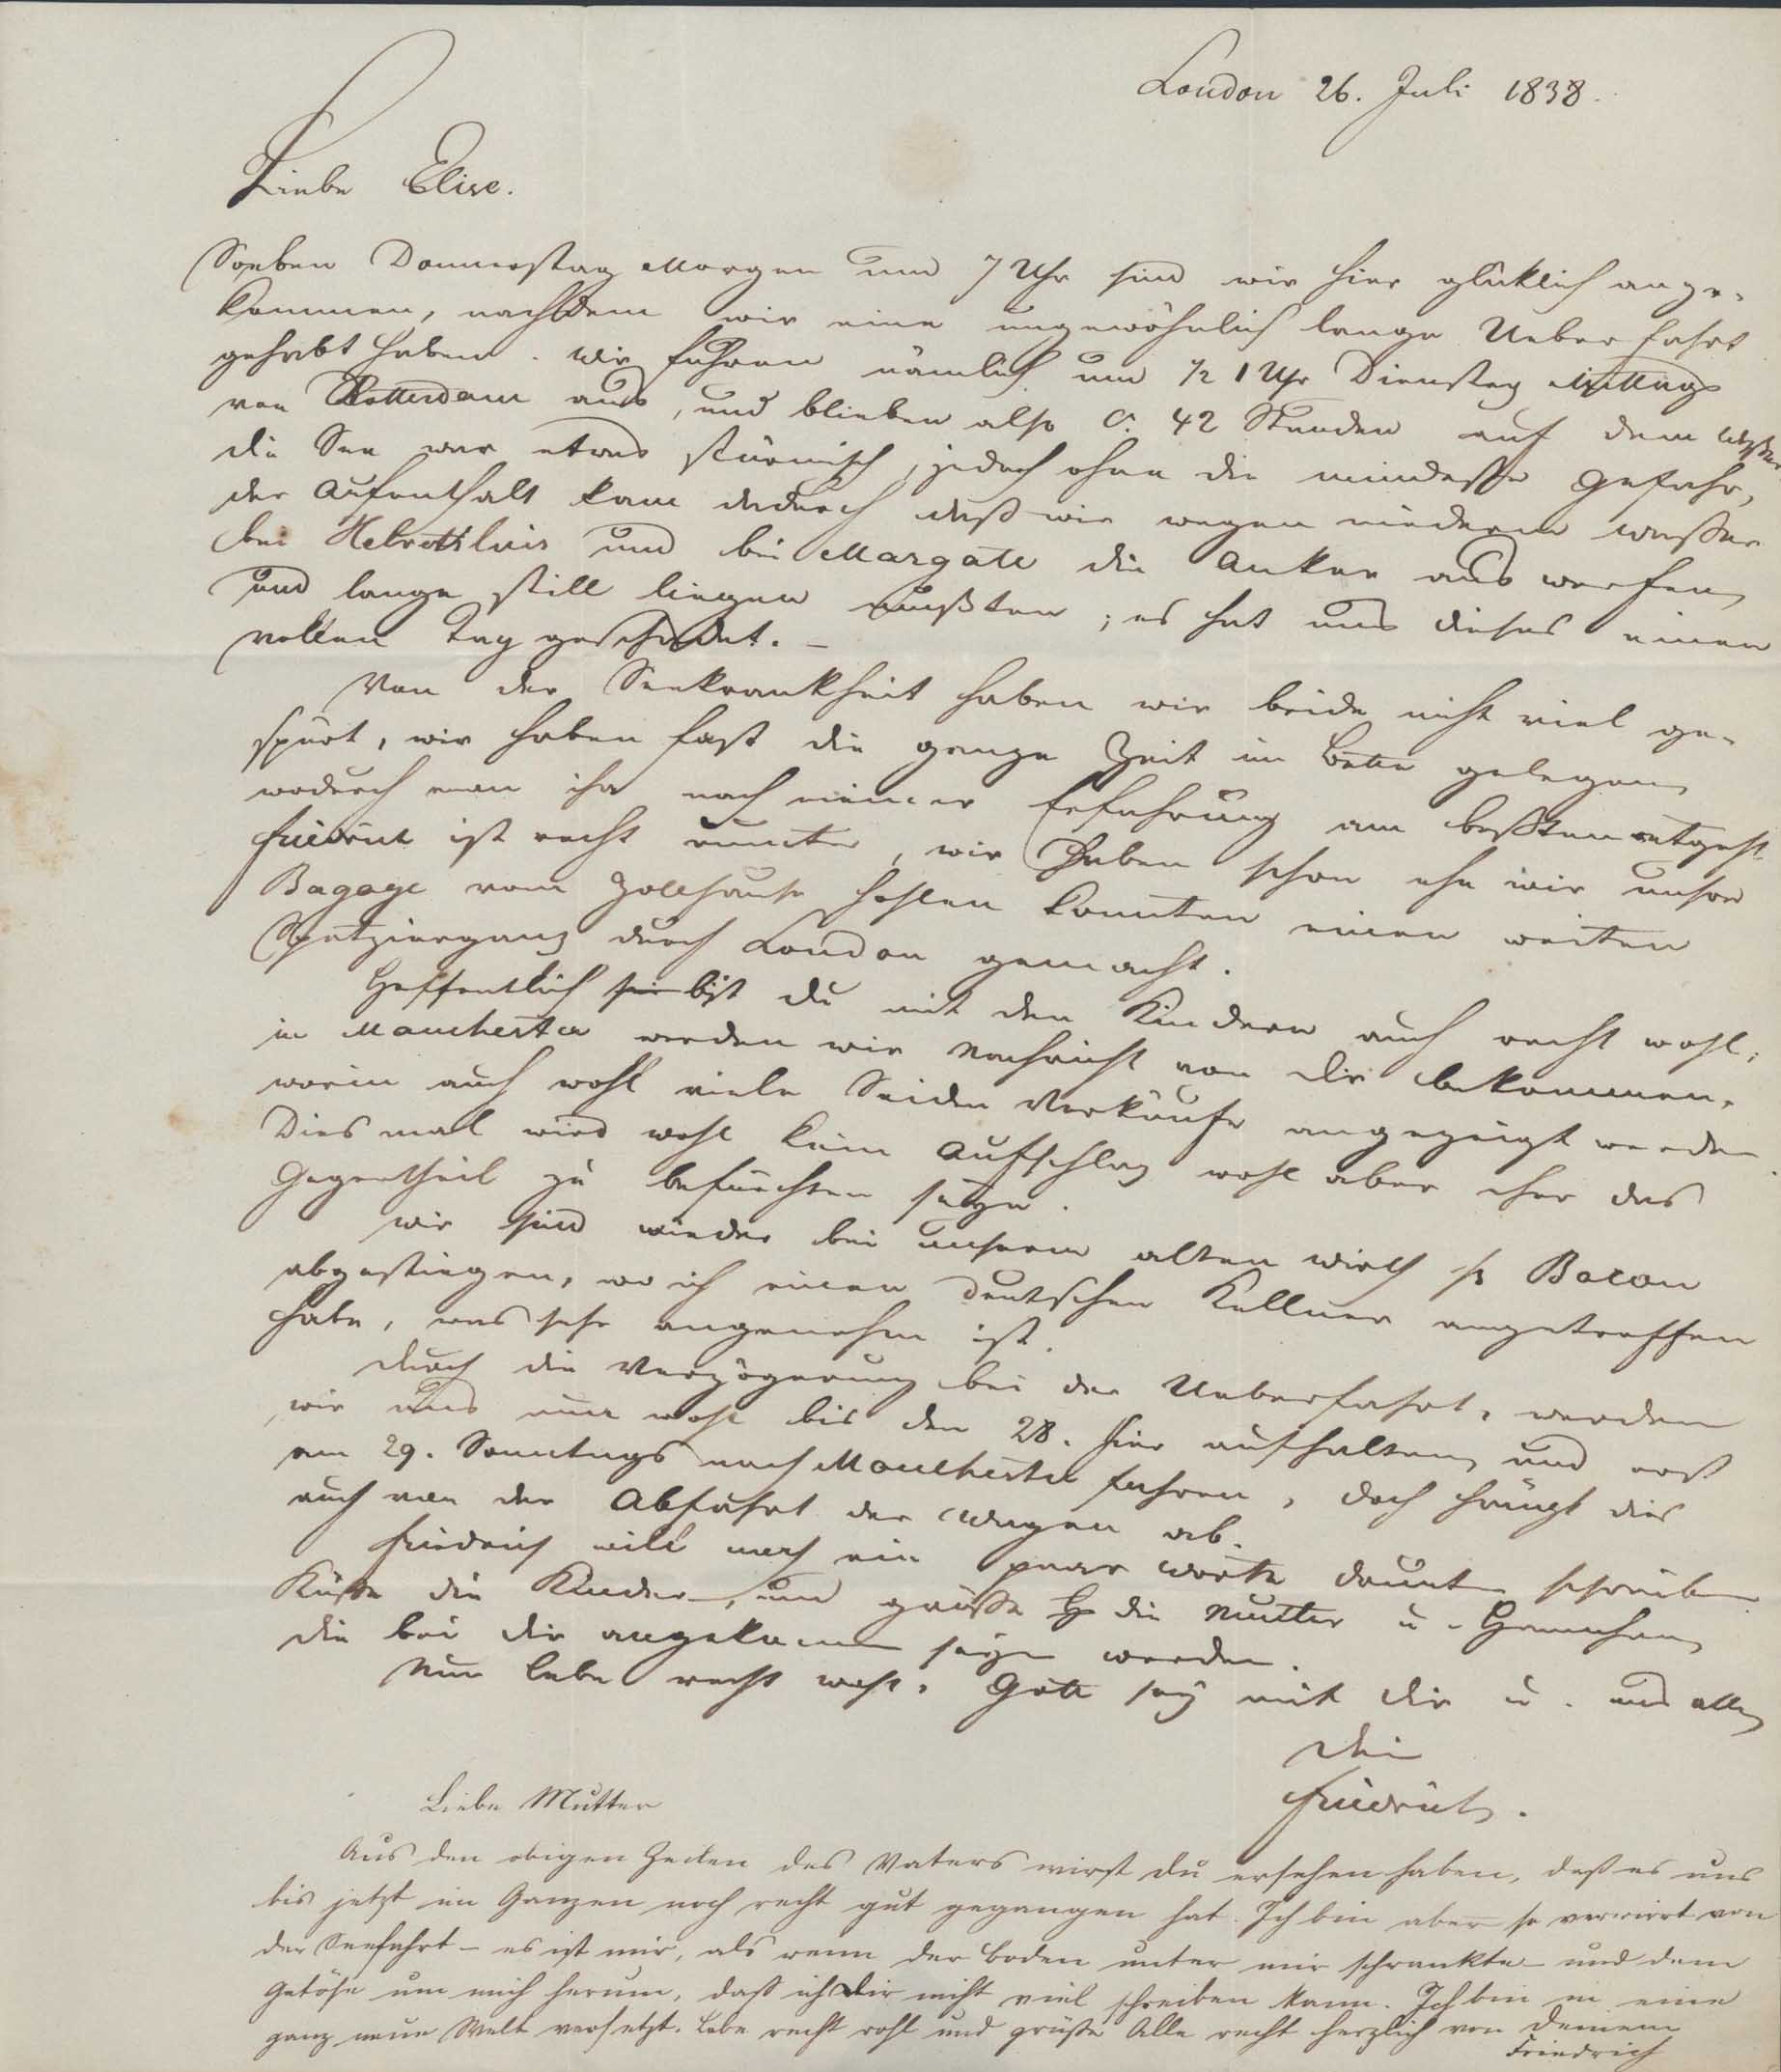 London 26. Juli 1838.
Liebe Elise.
Soeben Donnerstag Morgen um 7 Uhr sind wir hier glücklich ange-
kommen, nachdem wir eine ungewöhnlich lange Ueberfahrt
gehabt haben. Wir fuhren nämlich um ½ 1 Uhr Dienstag Mittags
von Rotterdam aus, und blieben also c. 42 Stunden auf dem
die See war etwas stürmisch, jedoch ohne die mindeste Gefahr,
der Aufenthalt kam dadurch daß wir wegen niederm Wasser
bei Helvotsluis und bei Margate die Anker aus werfen
und lange still liegen mußten; es hat uns dieses einen
vollen Tag geschadet. –
Von der Seekrankheit haben wir beide nicht viel ge-
spürt, wir haben fast die ganze Zeit im Bette gelegen
wodurch man ihr nach meiner Erfahrung am beßten entgeht.
Friedrich ist recht munter, wir haben schon ehe wir unsre
Bagage vom Zollhause hohlen konnten einen weiten
Spatziergang durch London gemacht.
Hoffentlich bist du mit den Kindern auch recht wohl;
in Manchester werden wir Nachricht von dir bekommen,
worin auch wohl viele Seiden Verkäufe angezeigt werden.
Diesmal wird wohl kein Aufschlag wohl aber eher das
Gegentheil zu befürchten seyn.
Wir sind wieder bei unserm alten Wirth H Bacon
abgestiegen, wo ich einen deutschen Kellner angetroffen
habe, was sehr angenehm ist.
Durch die Verzögerung bei der Ueberfahrt, werden
wir uns nun wohl bis den 28. hier aufhalten, und erst
am 29. Sonntags nach Manchester fahren, doch hängt dies
auch von der Abfahrt der Wagen ab.
Friedrich will noch ein paar Worte drunter schreiben
Küsse die Kinder, und grüße die Mutter u.
die bei dir angekommen seyn werden.
Nun lebe recht wohl, Gott sey mit dir u. uns allen
Dein
Friedrich.
Liebe Mutter
Aus den obigen Zeilen des Vaters wirst du ersehen haben, daß es uns
bis jetzt im Ganzen noch recht gut gegangen hat. Ich bin aber so verwirrt von
der Seefahrt – es ist mir, als wenn der Boden unter mir schwankte – und dem
Getöse um mich herum, daß ich Dir nicht viel schreiben kann. Ich bin in eine
ganz neue Welt versetzt. Lebe recht wohl und grüße Alle recht herzlich von Deinem
Friedrich